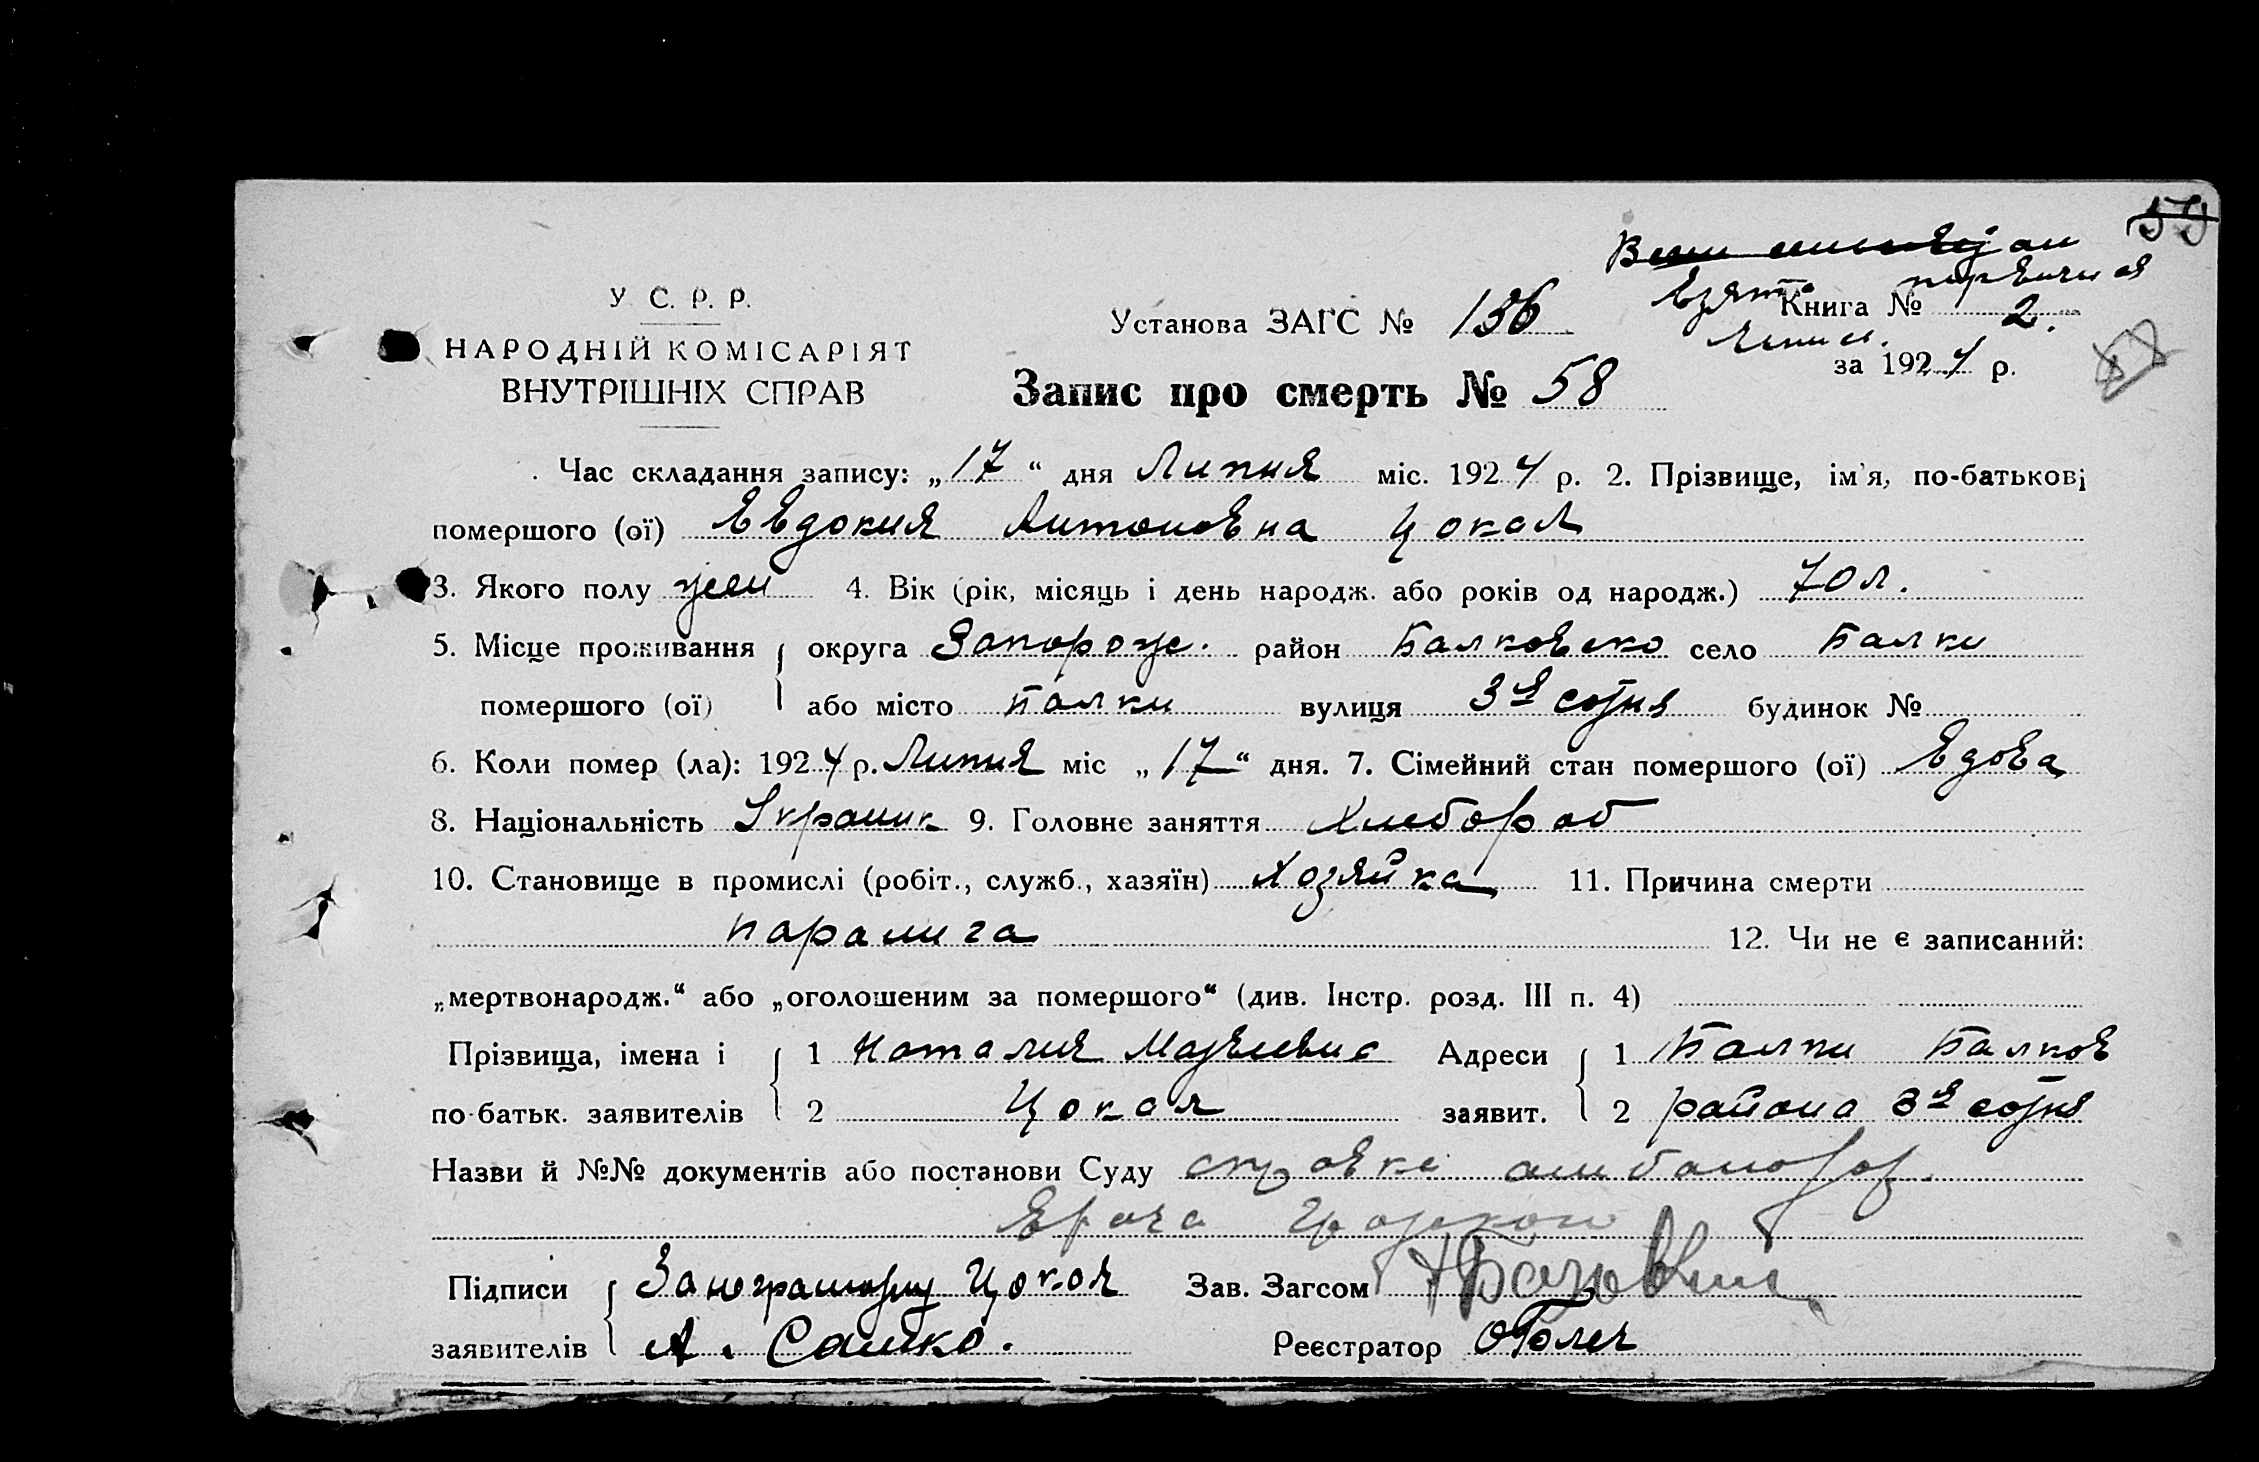 59
У. С. Р. Р.
НАРОДНІЙ КОМІСАРІЯТ
ВНУТРІШНІХ СПРАВ
Установа ЗАГС № 136
Книга № 2.
за 1924 р.
Запис про смерть № 58
Час складання запису: „17“ дня Липня міс. 1924 р. 2. Прізвище, ім'я, по-батькові
помершого (ої) Евдокия Антоновна Цокол
3. Якого полу жен 4. Вік (рік, місяць і день народж. або років од народж.) 70 л.
5. Місце проживання округа Запорож. район Балковско село Балки
помершого (ої) або місто Балки вулиця 3я сотня будинок №
6. Коли помер (ла): 1924 р. Липня міс „17“ дня. 7. Сімейний стан помершого (ої) Вдова
8. Національність Украинк 9. Головне заняття Хлебороб
10. Становище в промислі (робіт., служб., хазяїн) Хозяйка 11. Причина смерти
паралича 12. Чи не є записаний:
„мертвонародж.“ або „оголошеним за помершого“ (див. Інстр. розд. III п. 4)
Прізвища, імена і 1 Наталия Адреси 1 Балки Балков
по-батьк. заявителів 2 Цокол заявит. 2 района 3я сотня
Назви й №№ документів або постанови Суду
Врача
Підписи Цокол Зав. Загсом
заявителів А. Сашко. Реєстратор